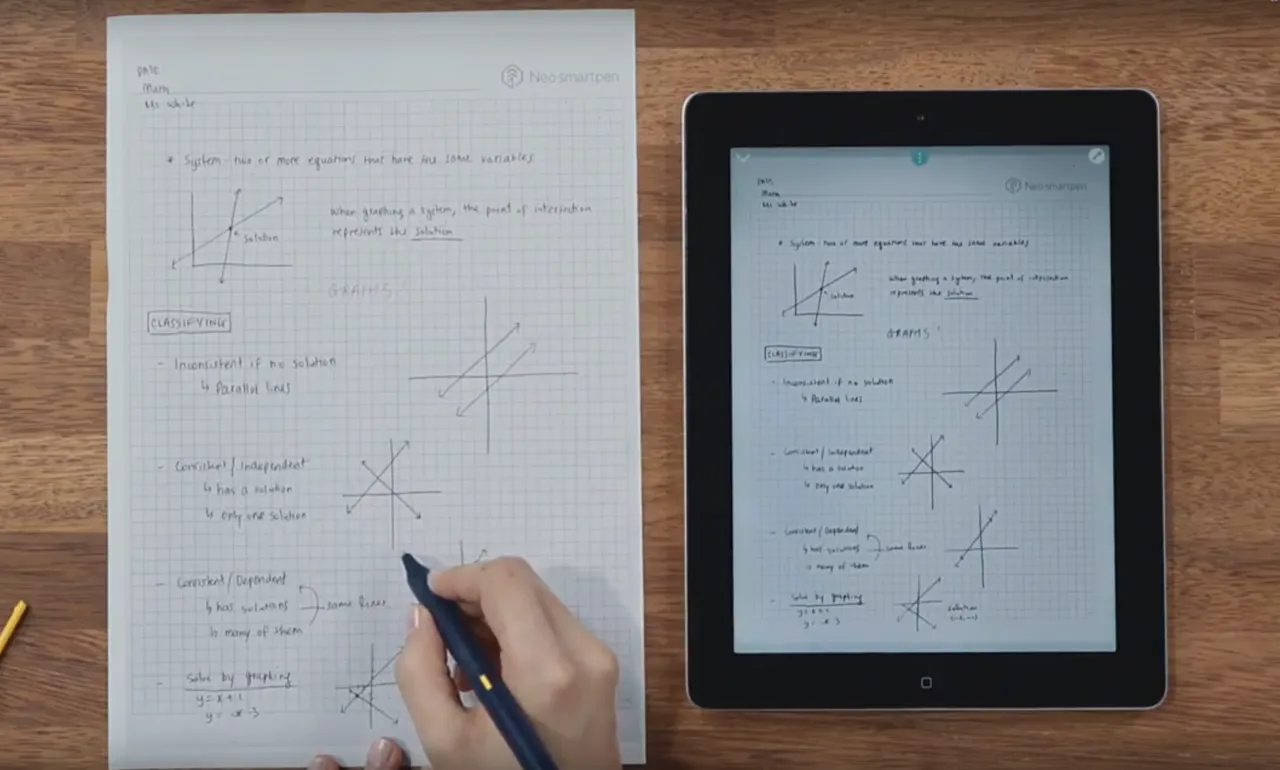 DATE
Math
Ms White
Neo smartpen
* System - two or more equations that have the same variables
Solution
When graphing a system, the point of intersection
represents the solution
GRAPHS!
CLASSIFYING
- Inconsistent if no solution
↳ Parallel lines
- Consistent/Independent
↳ has a solution
↳ only one solution
- Consistent/Dependent
↳ has solutions
same lines
↳ many of them
- Solve by graphing
y = x + 1
y = -x - 3
DATE
Math
Ms White
Neo smartpen
* System - two or more equations that have the same variables
Solution
When graphing a system, the point of intersection
represents the solution
GRAPHS!
CLASSIFYING
- Inconsistent if no solution
↳ Parallel lines
- Consistent/Independent
↳ has a solution
↳ only one solution
- Consistent/Dependent
↳ has solutions
same lines
↳ many of them
- Solve by graphing
y = x + 1
y = -x - 3
solution